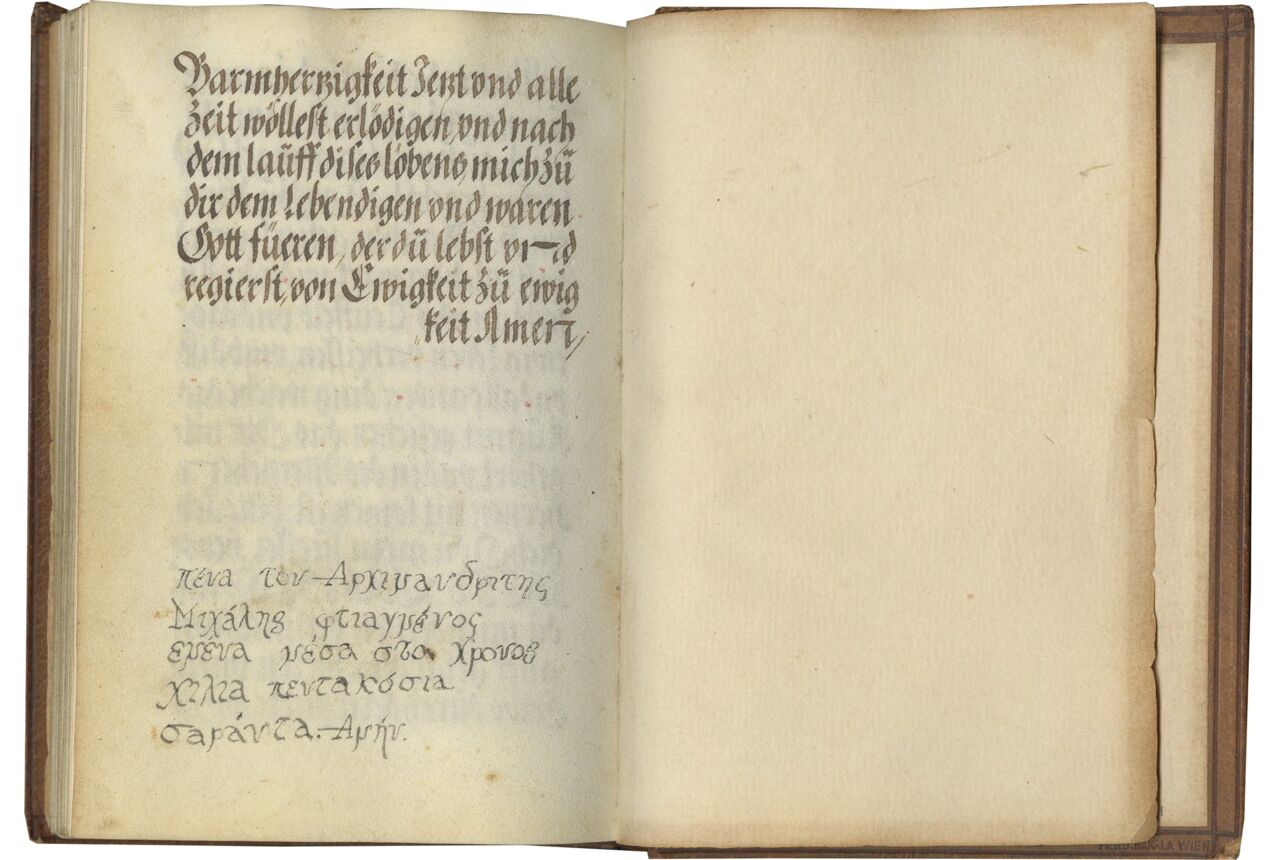 Barmhertzigkeit Jetzt vnd alle
Zeit wöllest erlödigen, vnd nach
dem laüff dises löbens, mich zü
dir dem Lebendigen vnd waren
Gott füeren, der dü lebst vnd
regierst, von Ewigkeit zü ewig
keit Amen,
πένα του Αρχιμανδρίτης
Μιχάλης φτιαγμένος
εμένα μέσα στο Χρονος
χιλια πεντακόσια
σαράντα. Αμήν.
FERD. BAKALA WIEN